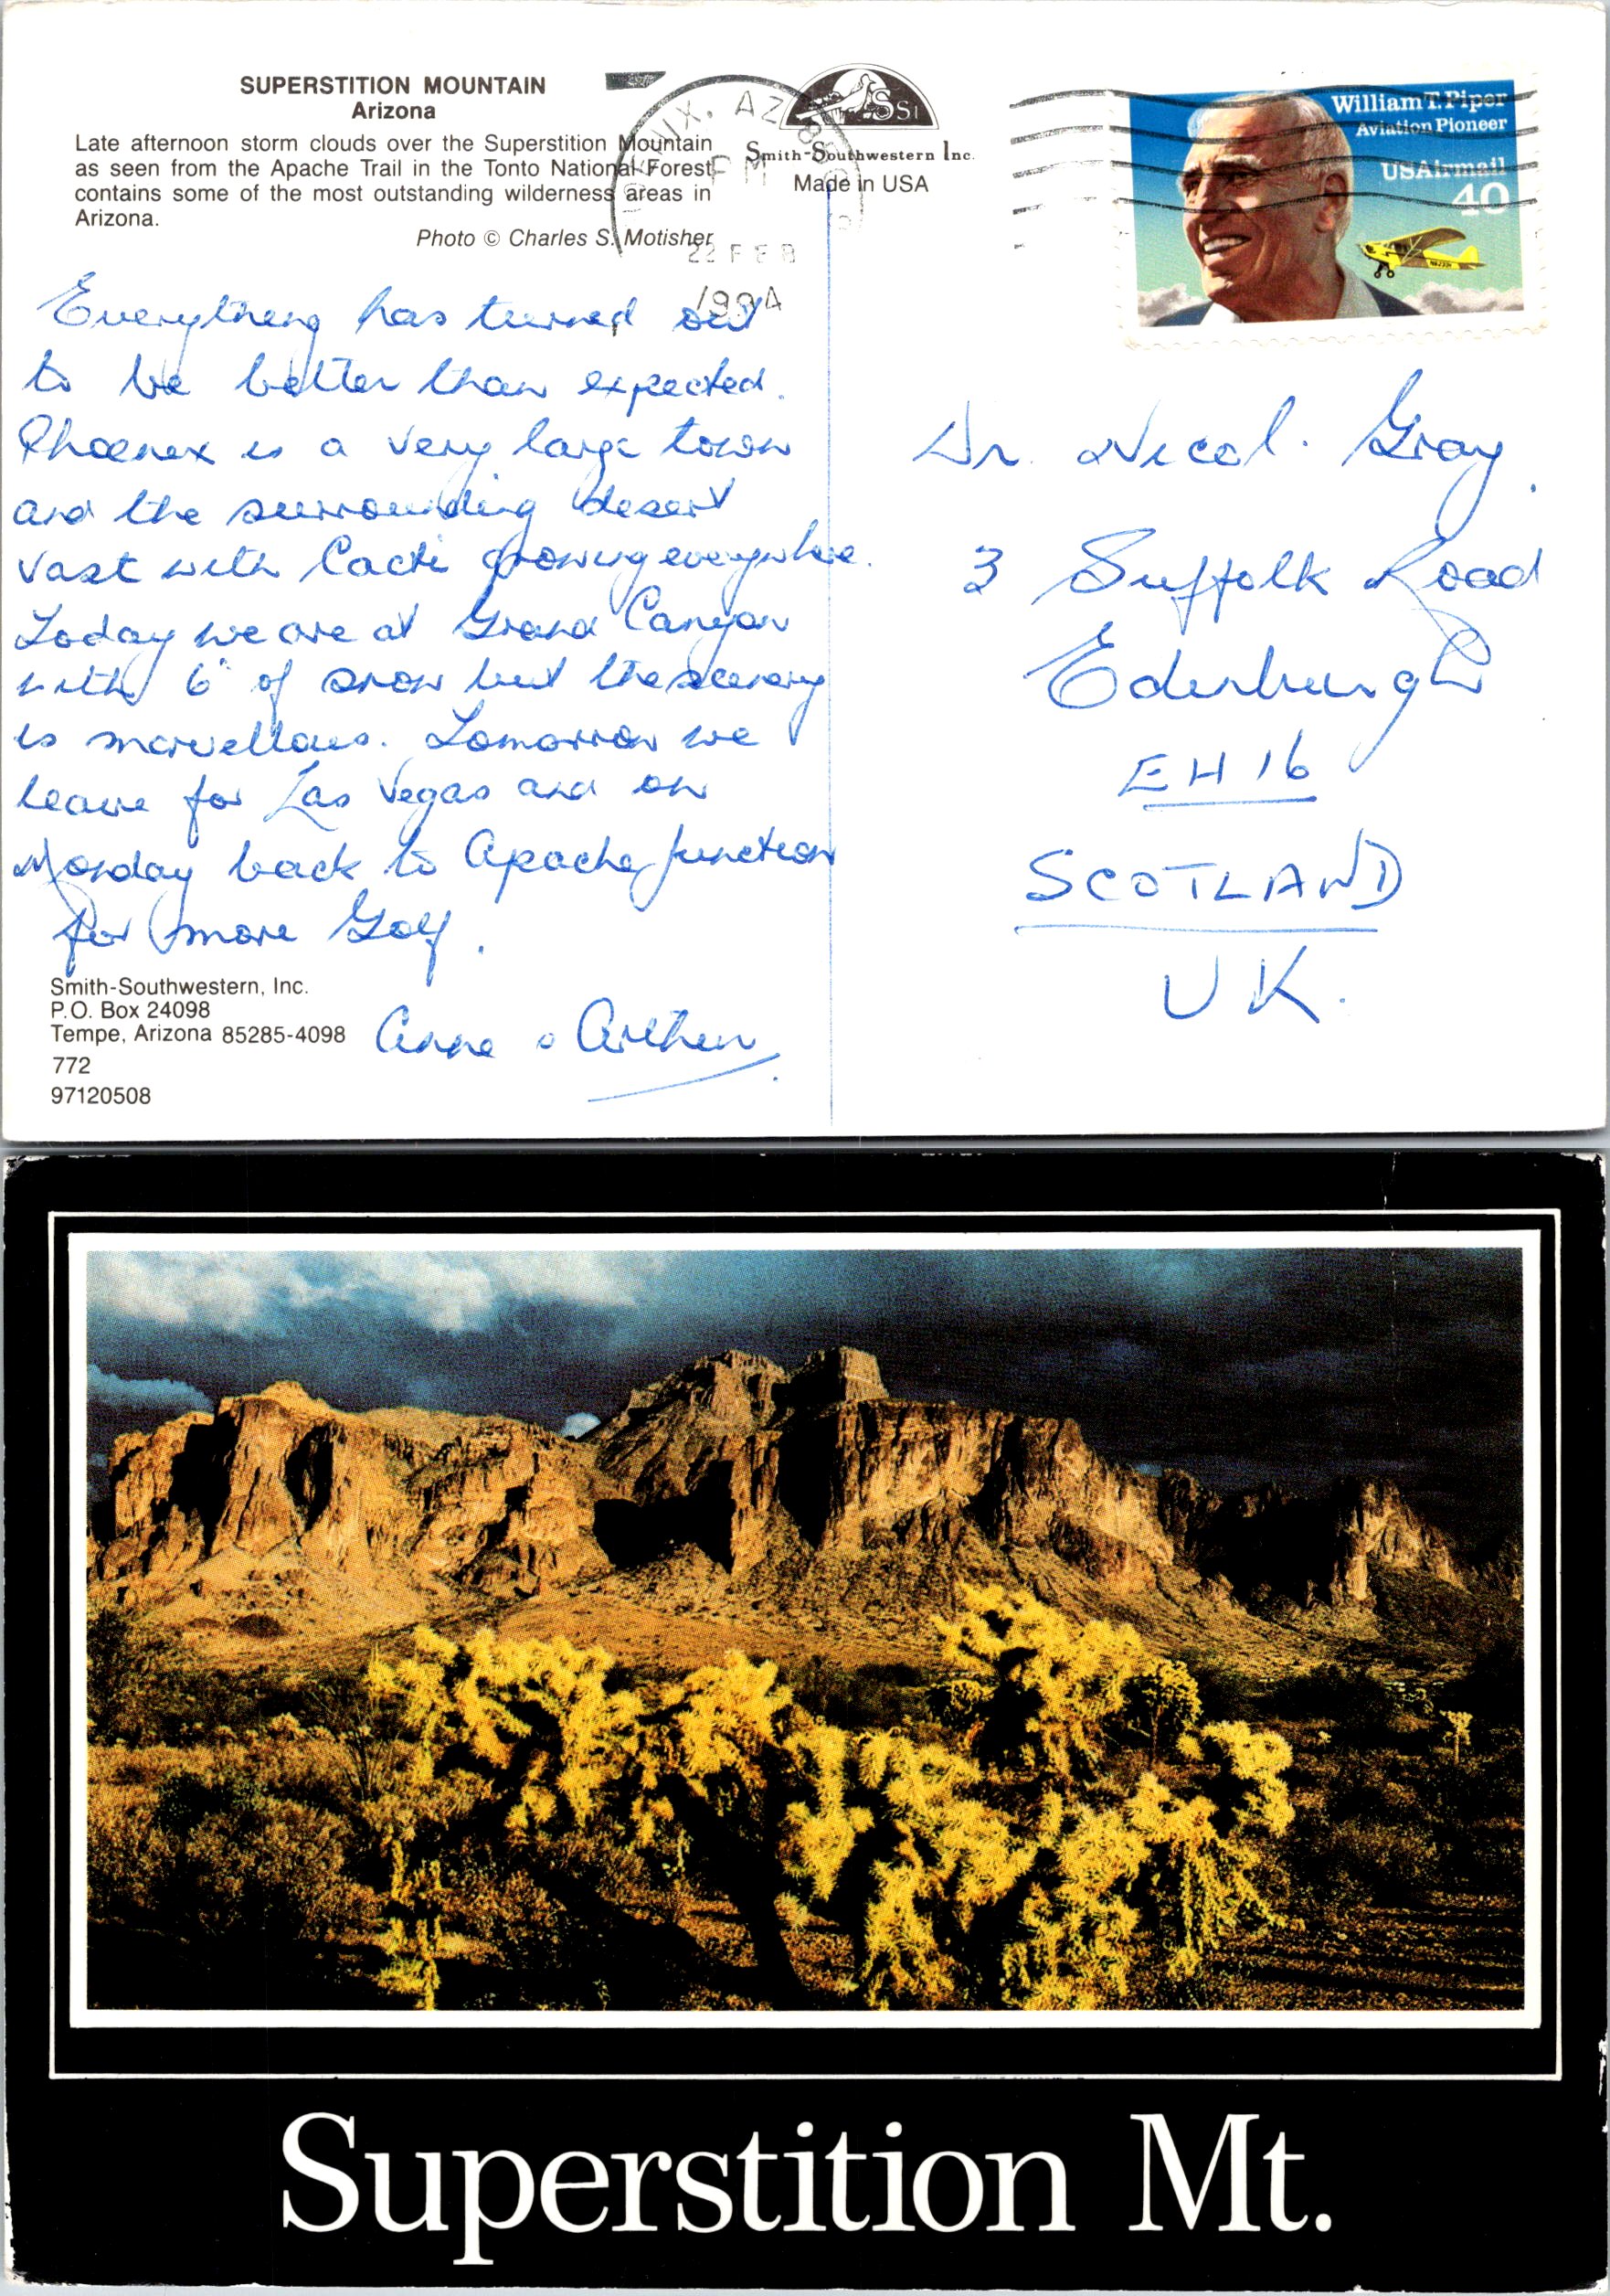 SUPERSTITION MOUNTAIN
Arizona
Late afternoon storm clouds over the Superstition Mountain
as seen from the Apache Trail in the Tonto National Forest
contains some of the most outstanding wilderness areas in
Arizona.
Photo © Charles S. Motisher
SSI
Smith-Southwestern Inc.
Made in USA
AZ
PM
22 FEB
1994
William T. Piper
Aviation Pioneer
USAirmail
40
Everything has turned out
to be better than expected.
Phoenex is a very large town
and the surrounding desert
vast with Cacti growing everywhere.
Today we are at Grand Canyon
with 6" of snow but the scenery
is marvellous. Tomorrow we
leave for Las Vegas and on
Monday back to Apache Junction
for more Golf.
Anne & Arthur
Smith-Southwestern, Inc.
P.O. Box 24098
Tempe, Arizona 85285-4098
772
97120508
Dr. Nicol. Gray.
3 Suffolk Road
Edinburgh
EH16
SCOTLAND
UK.
Superstition Mt.